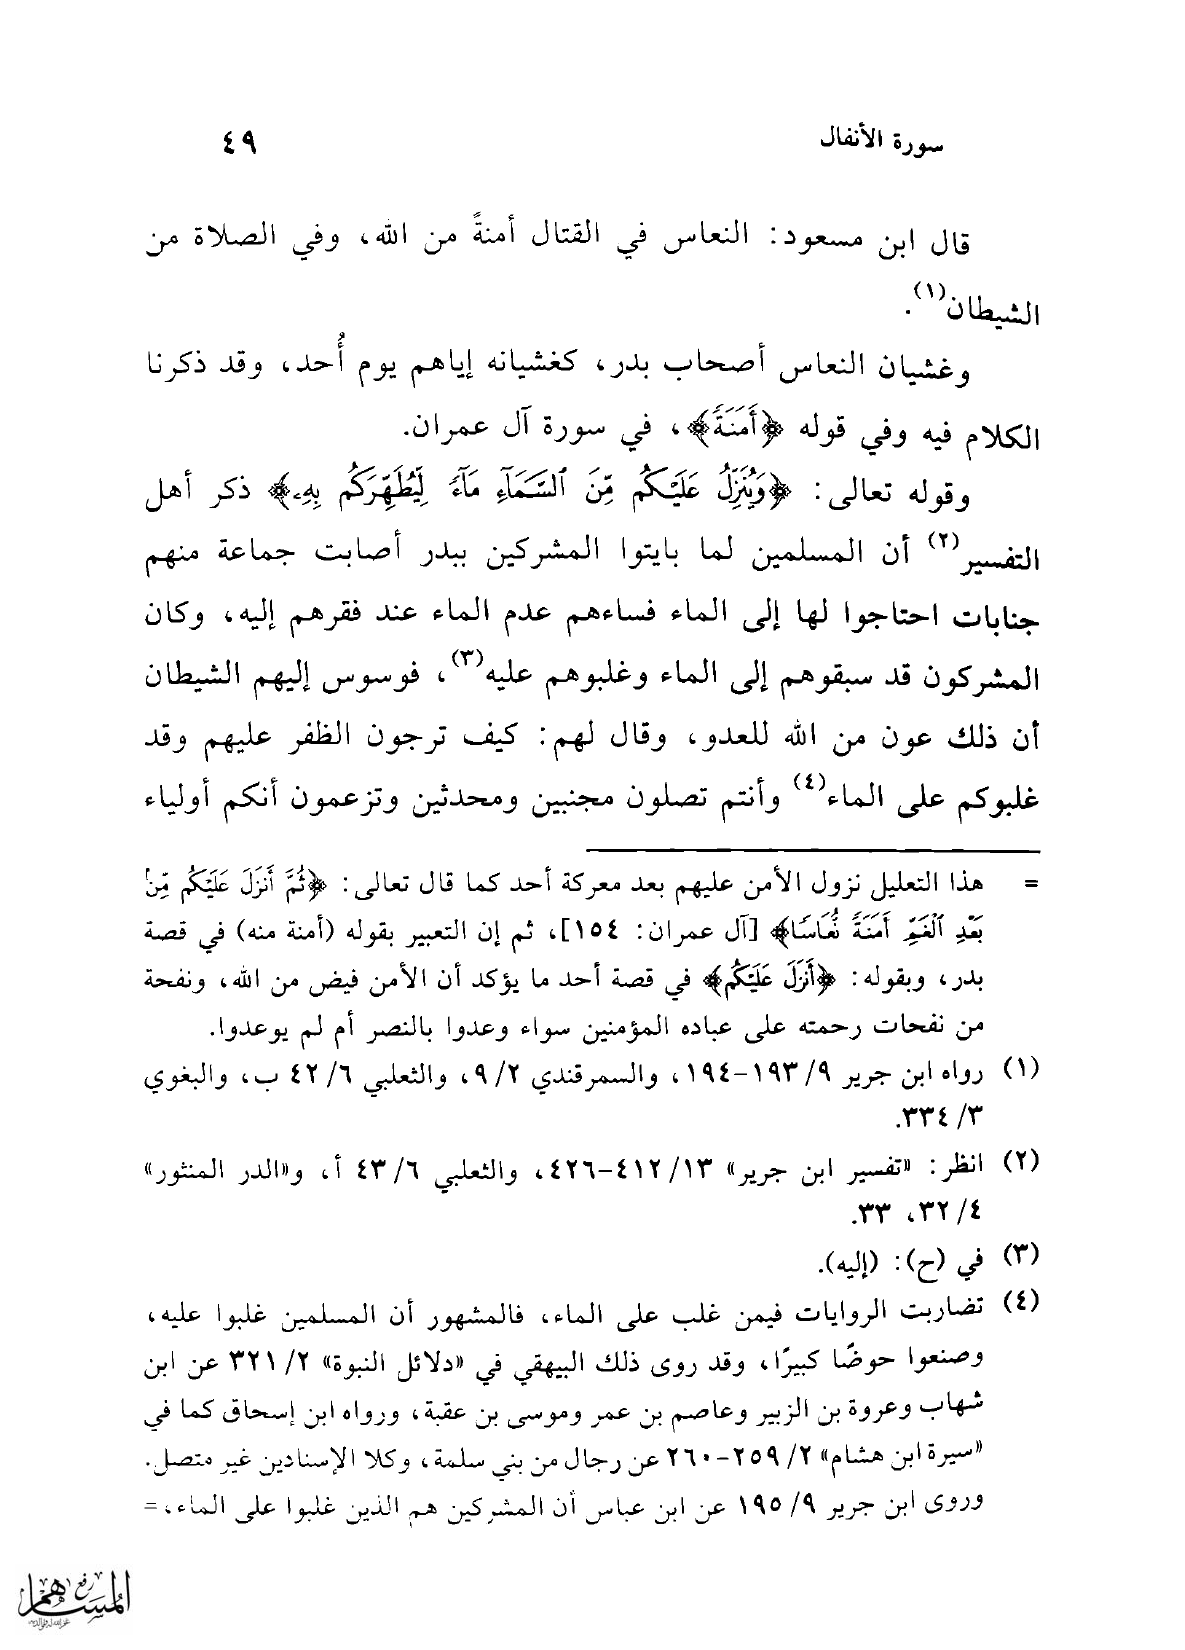 سورة الأنفال ٤٩
قال ابن مسعود: النعاس في القتال أمنةً من الله، وفي الصلاة من
الشيطان(١).
وغشيان النعاس أصحاب بدر، كغشيانه إياهم يوم أُحد، وقد ذكرنا
الكلام فيه وفي قوله ﴿أَمَنَةً﴾، في سورة آل عمران.
وقوله تعالى: ﴿وَيُنَزِّلُ عَلَيْكُم مِّنَ ٱلسَّمَآءِ مَآءً لِّيُطَهِّرَكُم بِهِۦ﴾ ذكر أهل
التفسير(٢) أن المسلمين لما بايتوا المشركين ببدر أصابت جماعة منهم
جنابات احتاجوا لها إلى الماء فساءهم عدم الماء عند فقرهم إليه، وكان
المشركون قد سبقوهم إلى الماء وغلبوهم عليه(٣)، فوسوس إليهم الشيطان
أن ذلك عون من الله للعدو، وقال لهم: كيف ترجون الظفر عليهم وقد
غلبوكم على الماء(٤) وأنتم تصلون مجنبين ومحدثين وتزعمون أنكم أولياء
= هذا التعليل نزول الأمن عليهم بعد معركة أحد كما قال تعالى: ﴿ثُمَّ أَنزَلَ عَلَيْكُم مِّنۢ
بَعْدِ ٱلْغَمِّ أَمَنَةً نُّعَاسًا﴾ [آل عمران: ١٥٤]، ثم إن التعبير بقوله (أمنة منه) في قصة
بدر، وبقوله: ﴿أَنزَلَ عَلَيْكُم﴾ في قصة أحد ما يؤكد أن الأمن فيض من الله، ونفحة
من نفحات رحمته على عباده المؤمنين سواء وعدوا بالنصر أم لم يوعدوا.
(١) رواه ابن جرير ٩/ ١٩٣-١٩٤، والسمرقندي ٢/ ٩، والثعلبي ٦/ ٤٢ ب، والبغوي
٣/ ٣٣٤.
(٢) انظر: «تفسير ابن جرير» ١٣/ ٤١٢-٤٢٦، والثعلبي ٦/ ٤٣ أ، و«الدر المنثور»
٤/ ٣٢، ٣٣.
(٣) في (ح): (إليه).
(٤) تضاربت الروايات فيمن غلب على الماء، فالمشهور أن المسلمين غلبوا عليه،
وصنعوا حوضًا كبيرًا، وقد روى ذلك البيهقي في «دلائل النبوة» ٢/ ٣٢١ عن ابن
شهاب وعروة بن الزبير وعاصم بن عمر وموسى بن عقبة، ورواه ابن إسحاق كما في
«سيرة ابن هشام» ٢/ ٢٥٩-٢٦٠ عن رجال من بني سلمة، وكلا الإسنادين غير متصل.
وروى ابن جرير ٩/ ١٩٥ عن ابن عباس أن المشركين هم الذين غلبوا على الماء، =